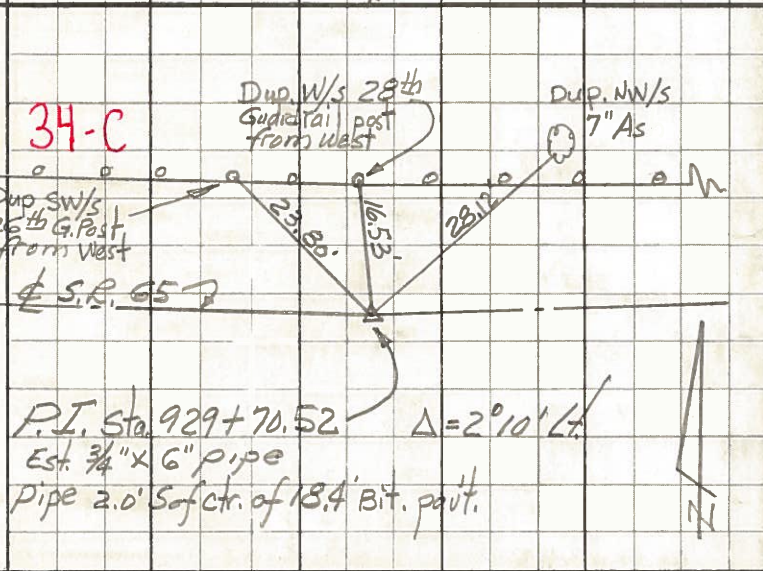 34-C
Dup. W/s 28th
Guardrail post
from west
Dup. NW/s
7" As
Dup SW/s
26th G. Post
from West
23.80'
16.53'
28.12'
℄ S.R. 65
P.I. Sta. 929+70.52
Δ = 2°10' Lt.
Est. 3/4" x 6" pipe
Pipe 2.0' S of ctr. of 18.4' Bit. pav't.
N